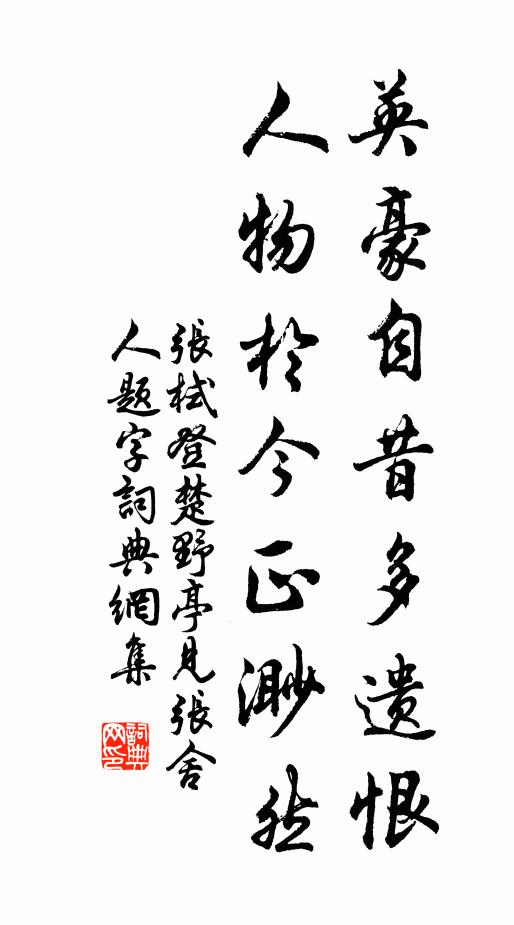 英豪自昔多遗恨
人物於今正渺然
張栻登楚野亭見張舍
人題字詞典網集
詞典网印